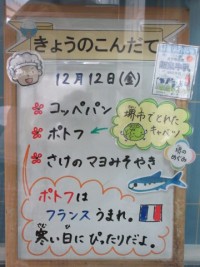 きょうのこんだて
12月12日(金)
コッペパン
ポトフ
堺市でとれた
キャベツ
さけのマヨみそやき
ポトフは
フランスうまれ。
寒い日にぴったりだよ。